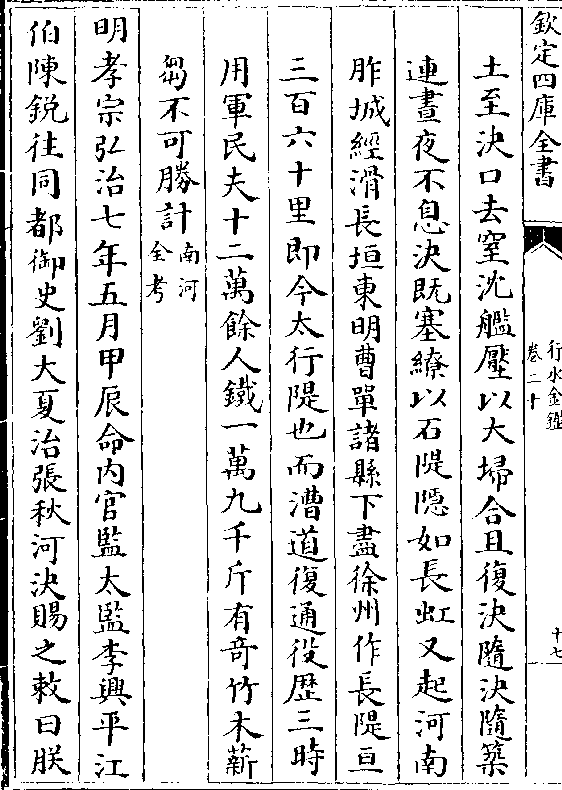 欽定四庫全書
行水金鑑
卷二十
十七
土至決口去窒沈艦壓以大埽合且復決隨決隨築
連晝夜不息決既塞繚以石隄隱如長虹又起河南
胙城經滑長垣東明曹單諸縣下盡徐州作長隄亘
三百六十里即今太行隄也而漕道復通役歴三時
用軍民夫十二萬餘人鐵一萬九千斤有奇竹木薪
芻不可勝計南河
全考
明孝宗弘治七年五月甲辰命内官監太監李興平江
伯陳鋭往同都御史劉大夏治張秋河決賜之敕曰朕